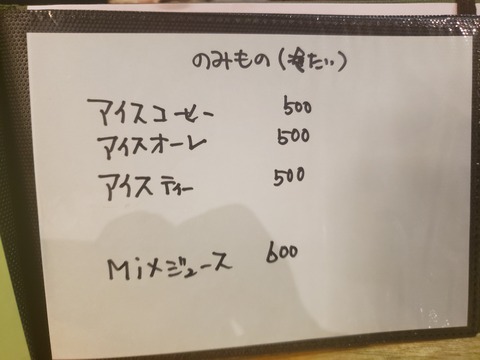 のみもの(冷たい)
アイスコーヒー 500
アイスオーレ 500
アイスティー 500
Mixジュース 600